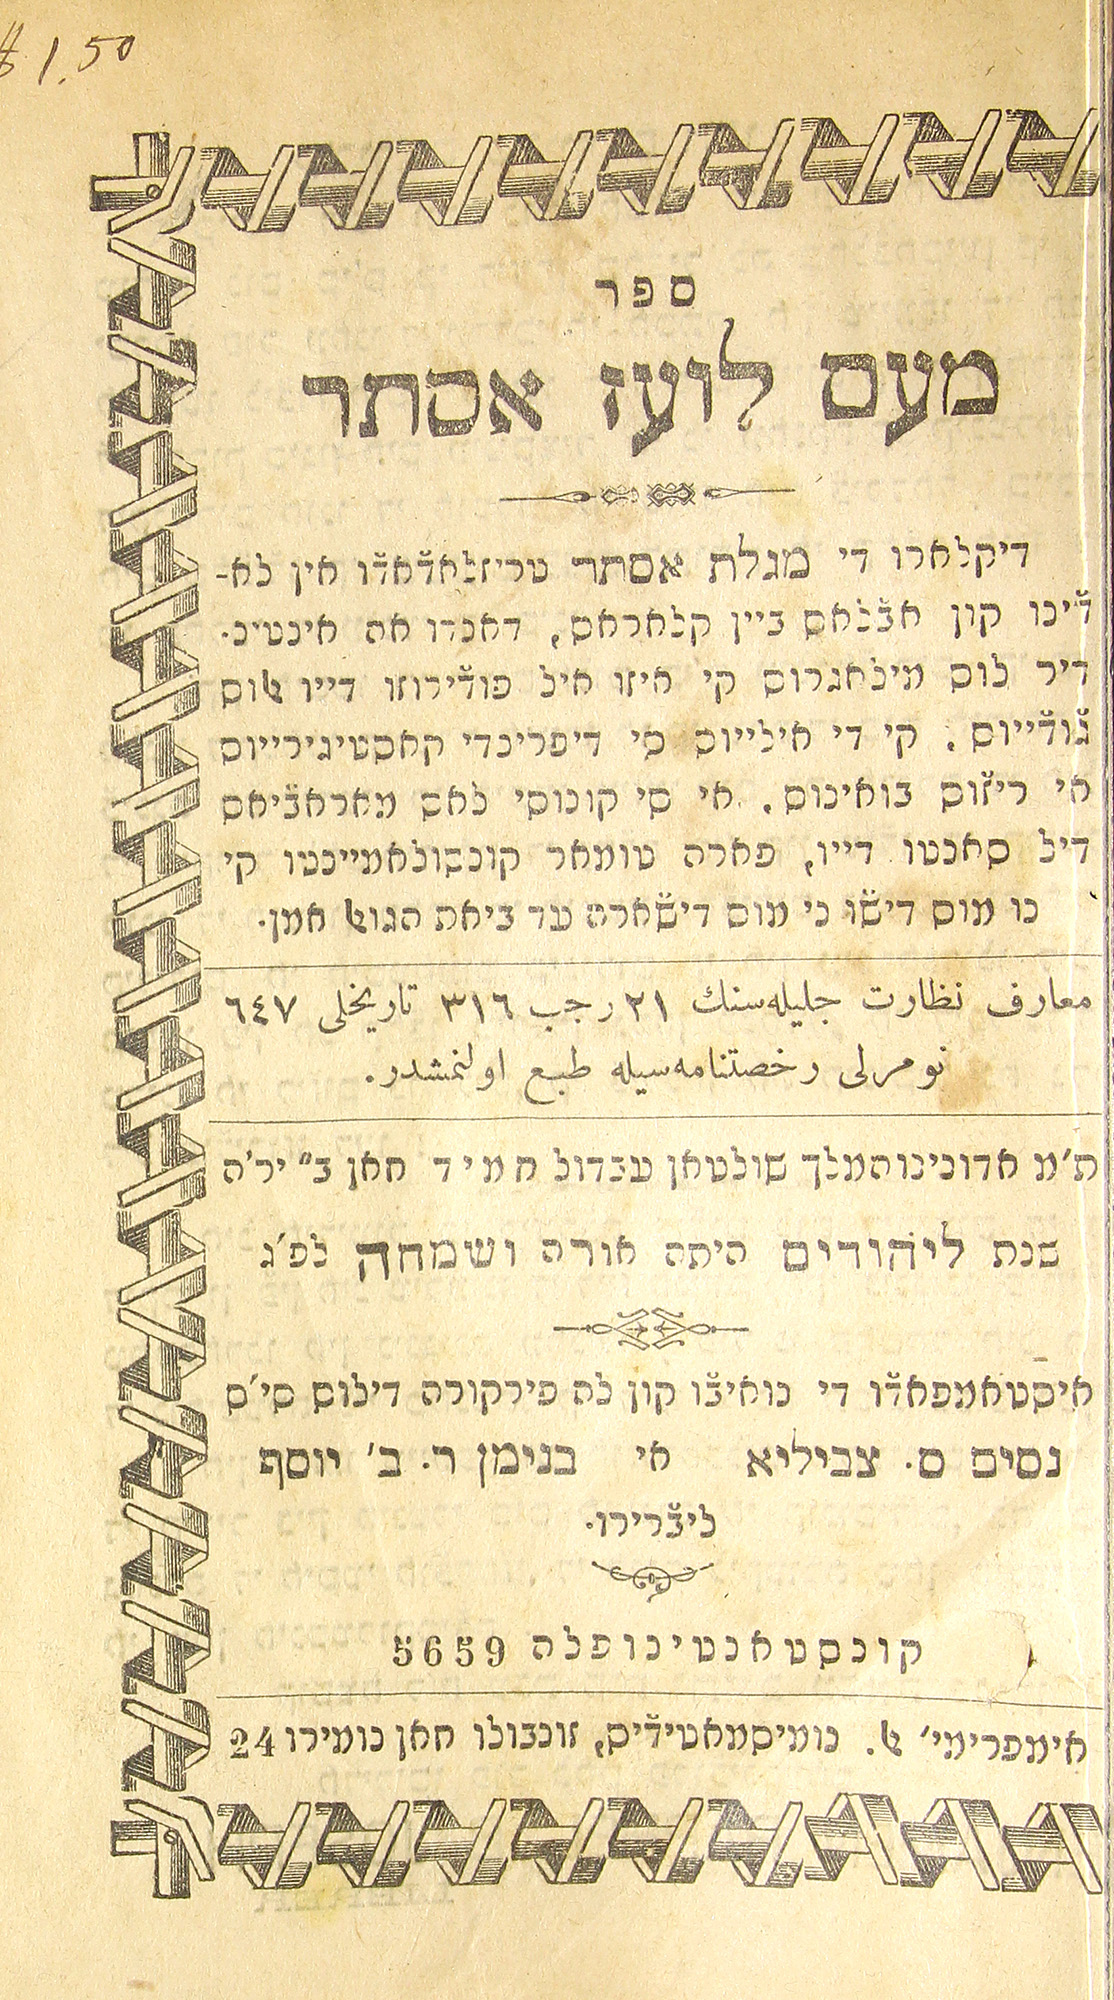 $ 1.50
ספר
מעם לועז אסתר
דיקלארו די מגלת אסתר טריזלאדֿאדֿו אין לא-
דֿינו קון אבֿלאס ביין קלאראס, דאנדו אה אינטינ-
דיר לוס מילאגרוס קי איזו איל פודֿירוזו דייו א לוס
גֿודֿייוס, קי די אילייוס סי דיפרינדי קאסטיגירייוס
אי ריזֿוס בואינוס, אי סי קונוסי לאס מאראבֿיאס
דיל סאנטו דייו, פארה טומאר קונסולאמיינטו קי
נו מוס דישֿו ני מוס דישֿארה עד ביאת הגואל אמן.
معارف نظارت جليله‌سنك ٢١ رجب ٣١٦ تاريخلى ٦٤٧
نومرلى رخصتنامه‌سيله طبع اولنمشدر.
ת'מ אדונינוהמלך שולטאן עבדול חמיד חאן ב" יר'ה
שנת ליהודים היתה אורה ושמחה לפ'ג
איסטאמפאדֿו די נואיבֿו קון לה פירקורה דילוס סי'ס
נסים ס. צביליא אי בנימן ר. ב' יוסף
ליבֿרירו.
קונסטאנטינופלה 5659
אימפרימי' אל. נומיסמאטידֿיס, זונבולו חאן נומירו 24